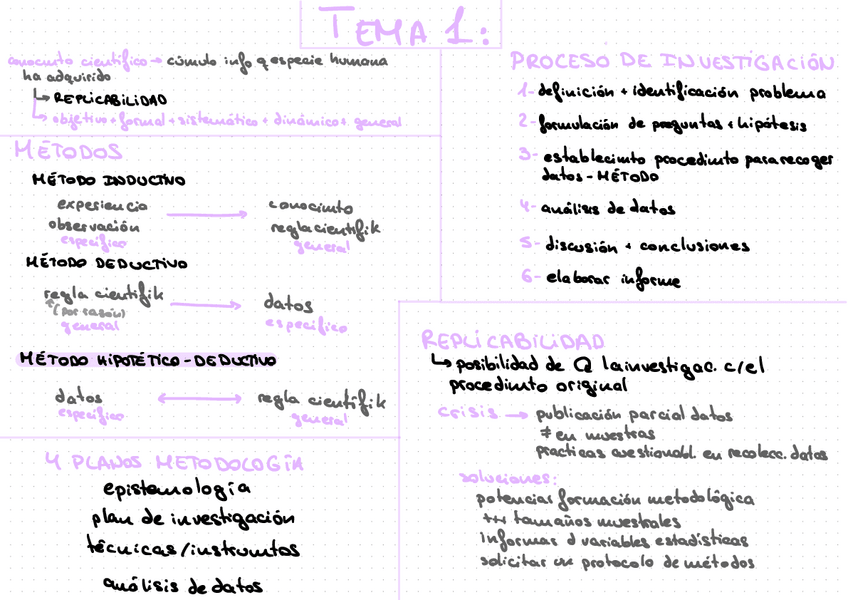 TEMA 1:
conocimto científico → cúmulo info q especie humana
ha adquirido
↳ REPLICABILIDAD
↳ objetivo + formal + sistemático + dinámico + general
MÉTODOS
MÉTODO INDUCTIVO
experiencia → conocimto
observación reglacientifik
específico general
MÉTODO DEDUCTIVO
regla cientifik → datos
(por razón)
general específico
MÉTODO HIPOTÉTICO-DEDUCTIVO
datos ↔ regla científik
específico general
4 PLANOS METODOLOGÍA
epistemología
plan de investigación
técnicas/instrumtos
análisis de datos
PROCESO DE INVESTIGACIÓN
1- definición + identificación problema
2- formulación de preguntas + hipótesis
3- establecimto procedimto para recoger
datos - MÉTODO
4- análisis de datos
5- discusión + conclusiones
6- elaborar informe
REPLICABILIDAD
↳ posibilidad de la investigac. c/el
procedimto original
crisis → publicación parcial datos
≠ en muestras
practicas cuestionabl. en recolecc. datos
soluciones:
potenciar formación metodológica
+++ tamaños muestrales
informar d variables estadísticas
solicitar un protocolo de métodos